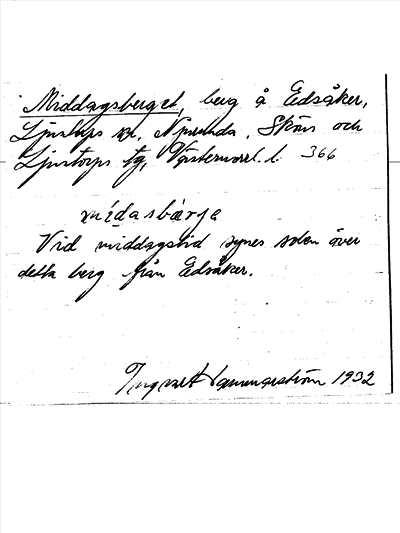 Middagsberget, berg å Edsåker,
Ljustorps sn, Njurunda, Sköns och
Ljustorps tg, Västernorrl. l. 366
mídasbàrje
Vid middagstid synes solen över
detta berg från Edsåker.
Ingvar Hammarström 1932